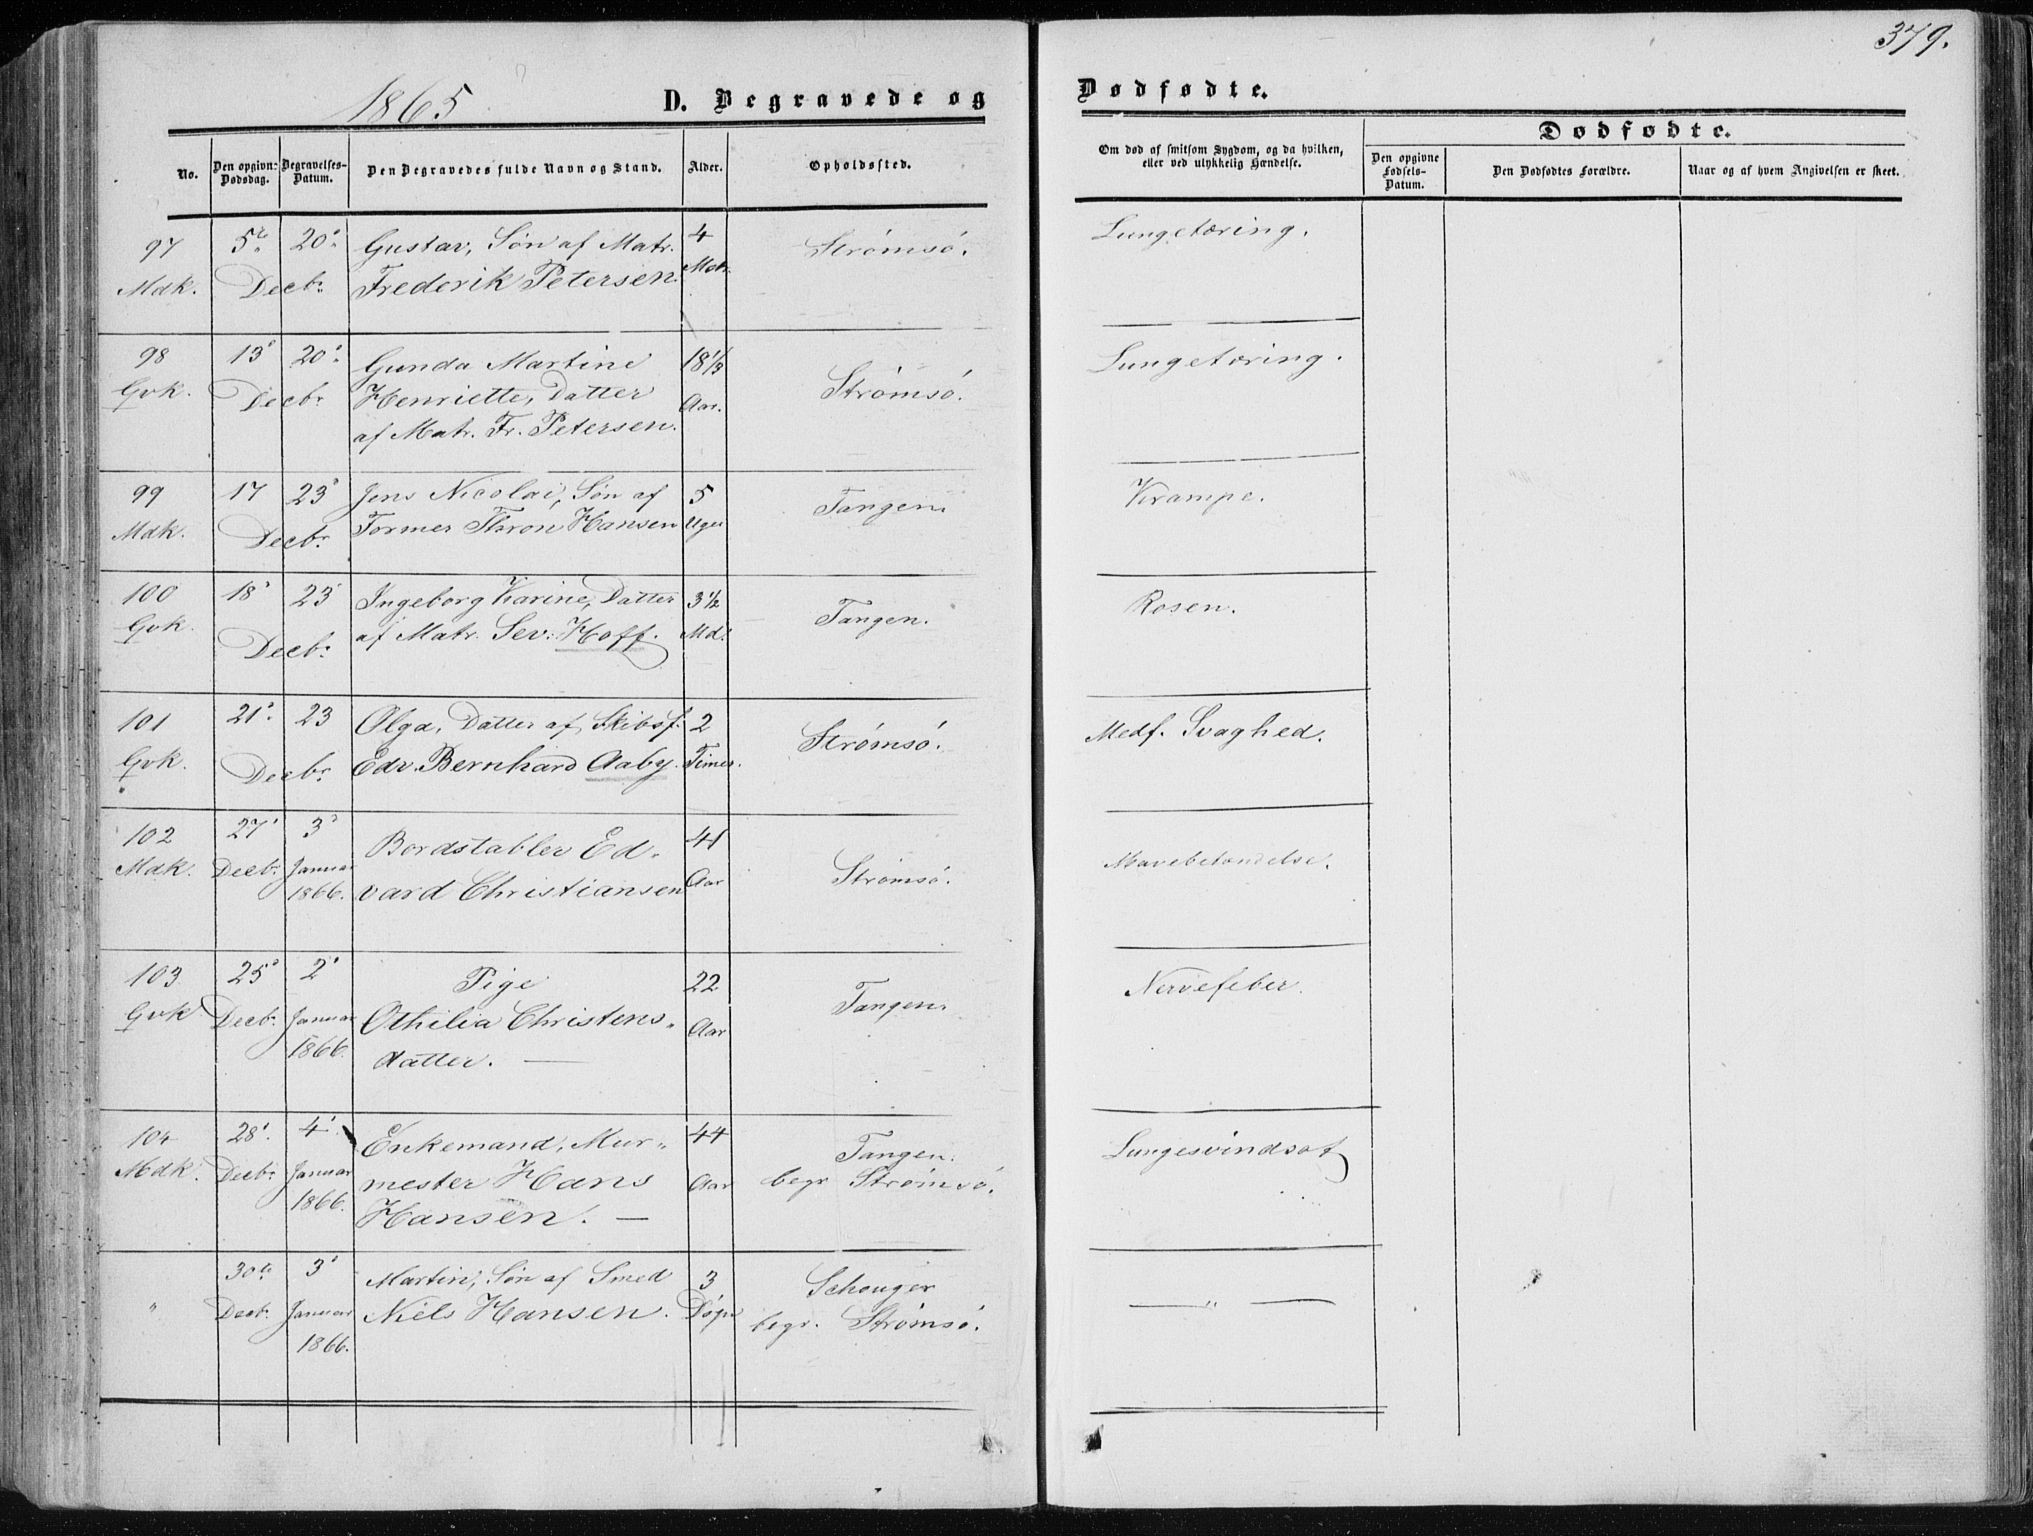 379.
1865
D. Begravede og
Dødfødte.
No.
Den opgivn: Dødsdag.
Begravelses-Datum.
Den Begravedes fulde Navn og Stand.
Alder.
Opholdssted.
Om død af smitsom Sygdom, og da hvilken, eller ved ulykkelig Hændelse.
Dødfødte.
Den opgivne Fødsels-Datum.
Den Dødfødtes Forældre.
Naar og af hvem Angivelsen er skeet.
97 5te 20de Gustav, Søn af Matr. 4 Strømsö. Lungetæring.
Mdk. Decbr. Frederik Petersen Mdr.
98 13de 20de Gunda Martine 18 1/3 Lungetæring.
Gvk. Decbr Henriette, Datter Aar. Strømsö.
af Matr. Fr. Petersen.
99 17 23de Jens Nicolai, Søn af 5 Tangen. Krampe.
Mdk. Decbr. Former Thron Hansen Uger
100 18de 23 Ingeborg Karine, Datter 3 1/2 Tangen. Rosen.
Gvk. Decbr. af Matr. Sev: Hoff. Md.
101 21de 23 Olga, Datter af Skibsf. 2 Strømsö. Medf. Svaghed.
Gvk. Decbr. Edv. Bernhard Aaby. Timer.
102 27de 3de Bordstabler Ed- 41
Mdk. Decbr. Januar vard Christiansen Aar Strømsö. Mavebetændelse.
1866.
103 25de 2de Pige 22 Tangen. Nervefeber.
Gvk Decbr. Januar Othilia Christens- Aar
1866. datter. —
104 28de 4de Enkemand, Mur- 44 Tangen. Lungesvindsot
Mdk. Decbr. Januar mester Hans Aar begr Strømsö.
1866. Hansen. —
30te 3de Martin, Søn af Smed 3
" Decbr. Januar Niels Hansen. Døgn begr. Strømsö. — " —
1866.